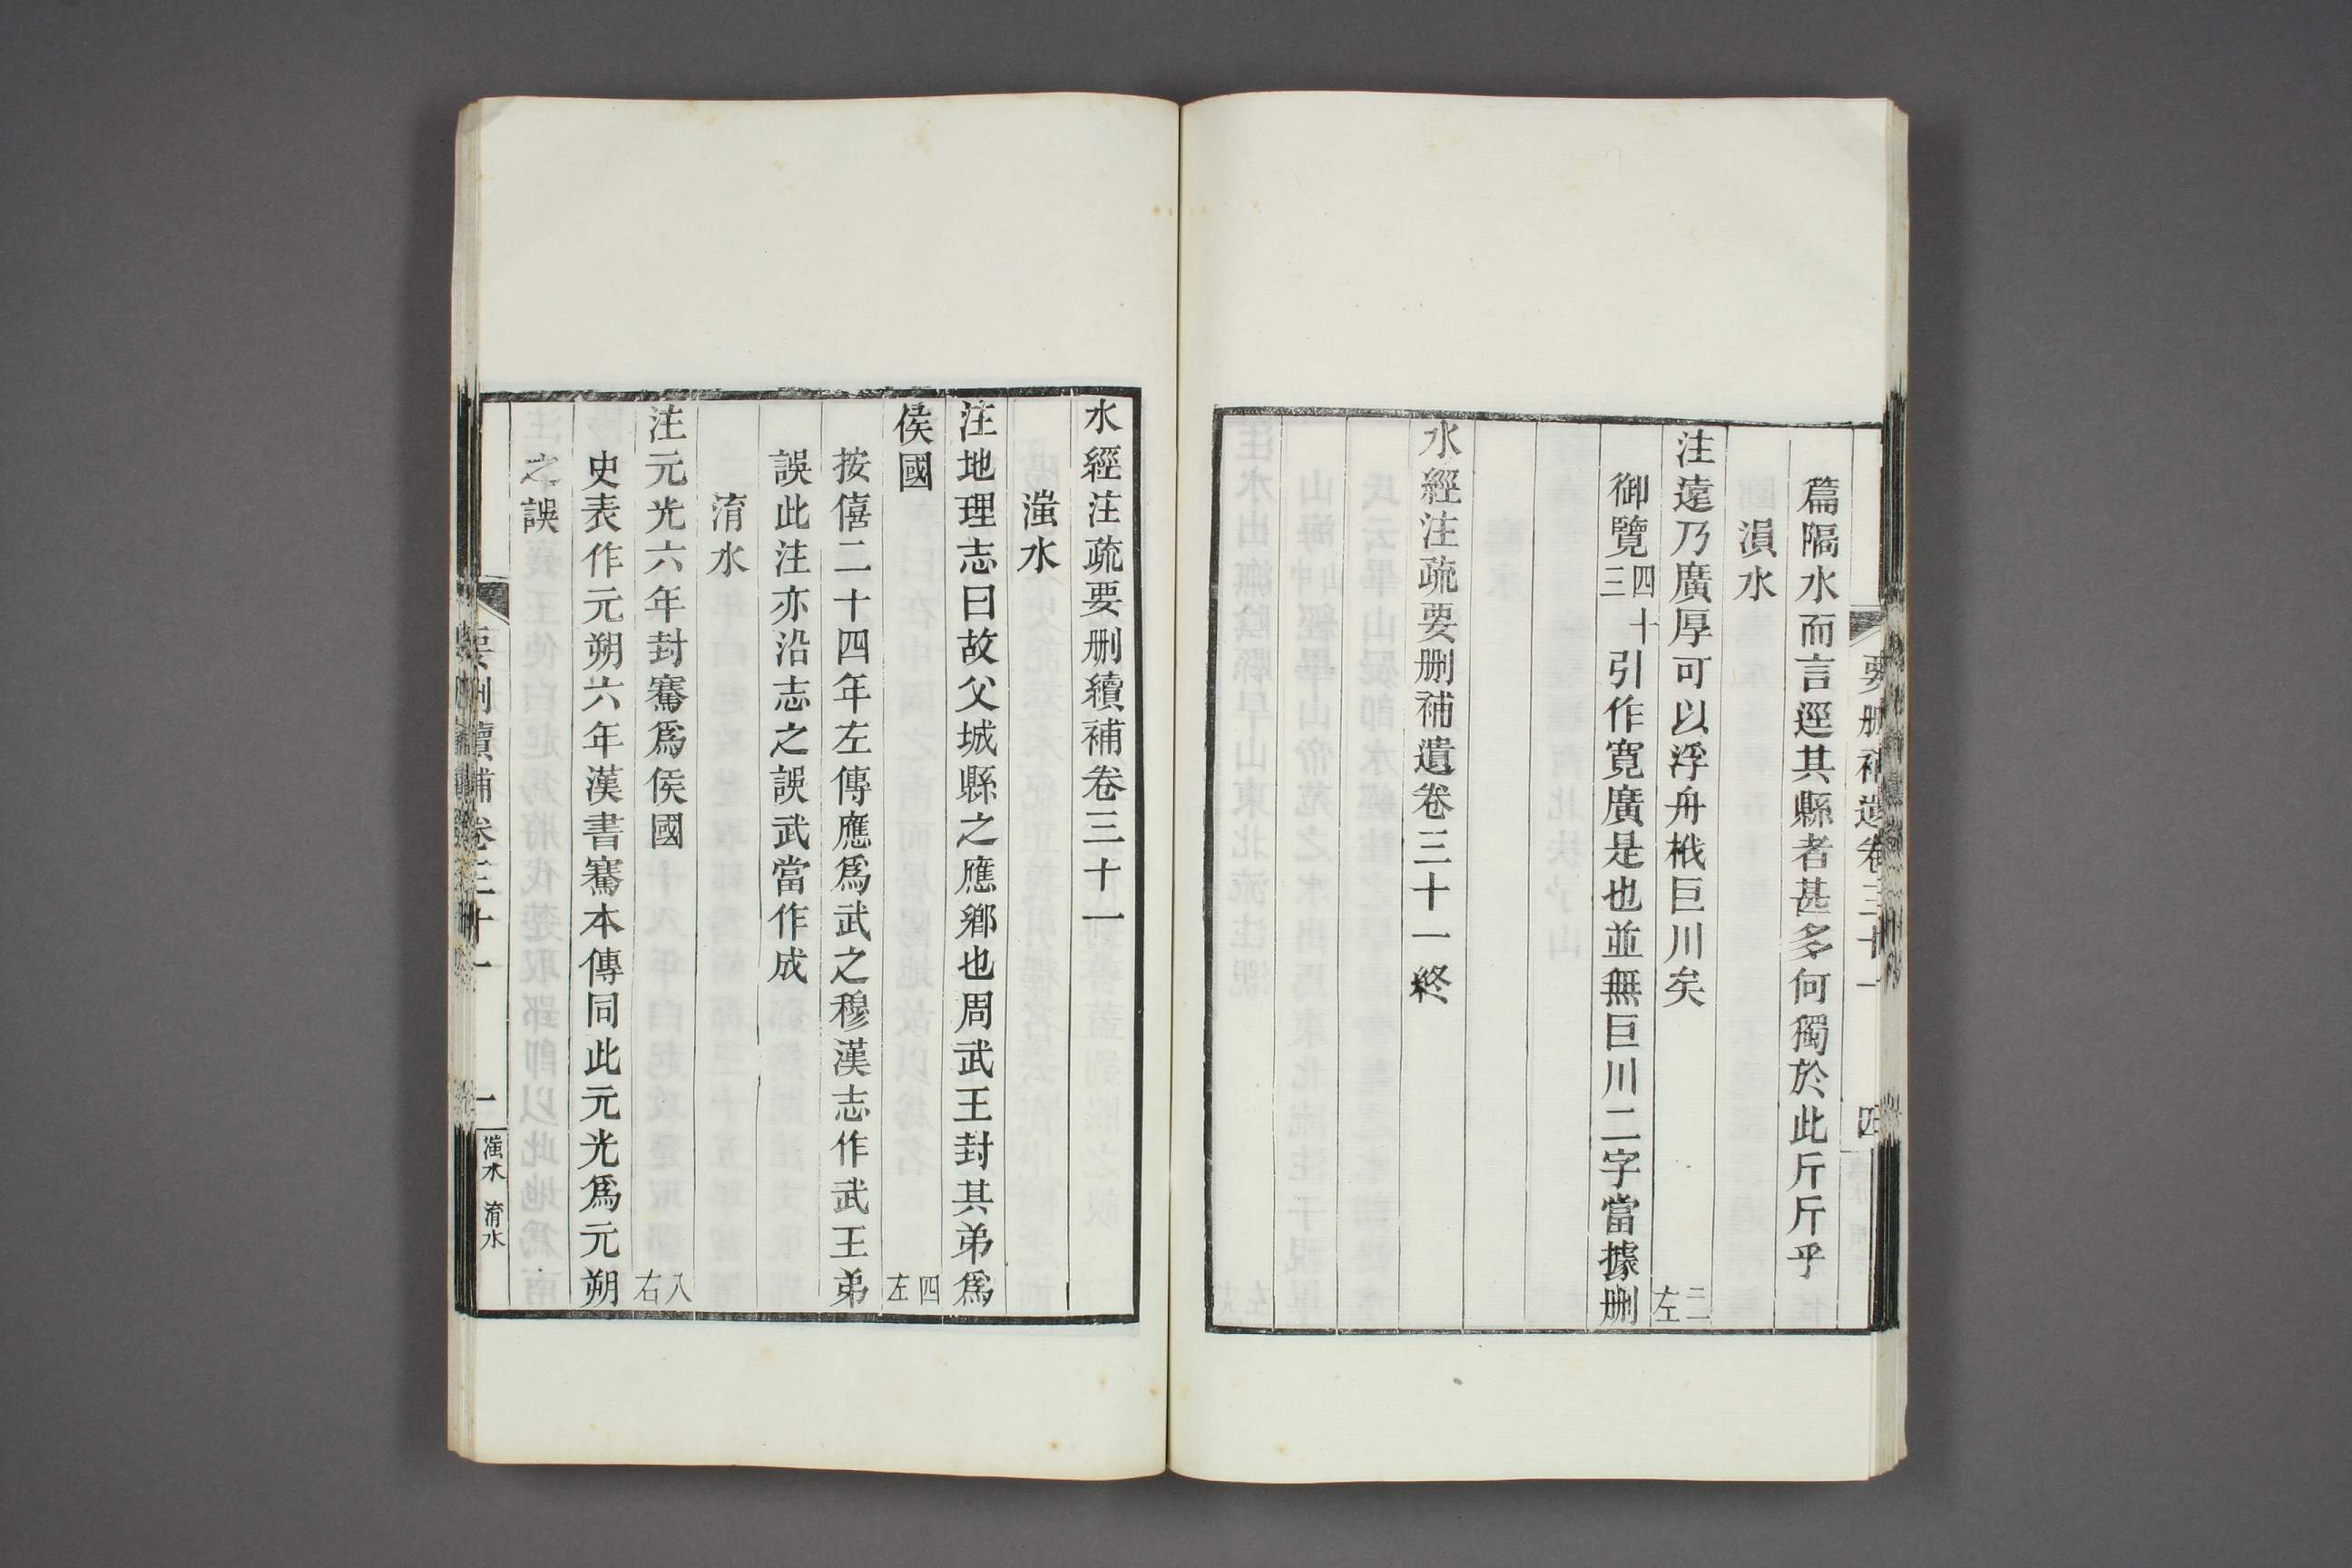 要刪補遺卷三十一
四
篇隔水而言逕其縣者甚多何獨於此斤斤乎
溳水
注遠乃廣厚可以浮舟栰巨川矣 二左
御覽四十三引作寬廣是也並無巨川二字當據刪
水經注疏要刪補遺卷三十一終
水經注疏要刪續補卷三十一
滍水
注地理志曰故父城縣之應鄉也周武王封其弟爲
侯國 四左
按僖二十四年左傳應爲武之穆漢志作武王弟
誤此注亦沿志之誤武當作成
淯水
注元光六年封騫爲侯國 八右
史表作元朔六年漢書騫本傳同此元光爲元朔
之誤
要刪續補卷三十一
一
滍水 淯水